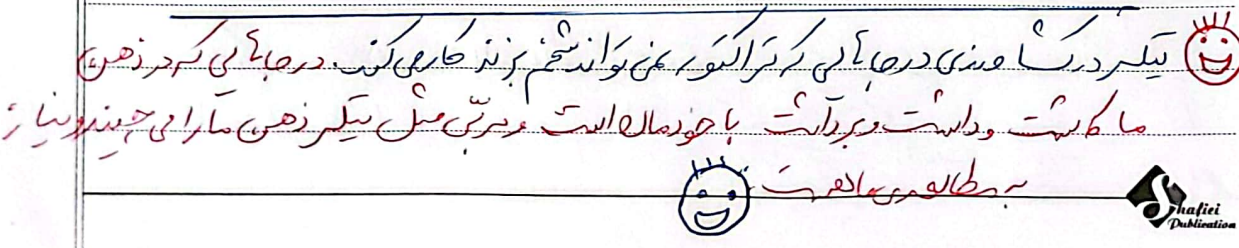 تیلر در کشاورزی در جاهایی که تراکتور نمی تواند شخم بزند کار می کند. در جاهایی که در ذهن
ما کاشت و داشت و برداشت با خودمان است و مربّی مثل تیلر ذهن ما را می و نیاز
به مطالعه ی ما هست
Shafiei
Publication